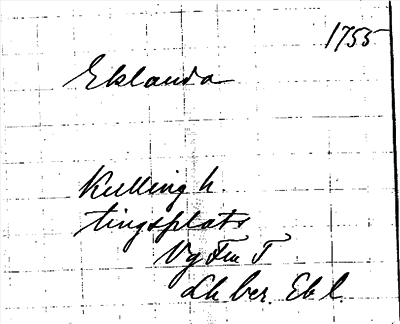 1755
Eklanda
Kulling h.
tingsplats
Vg Fm T
Lh ber. Ekl.